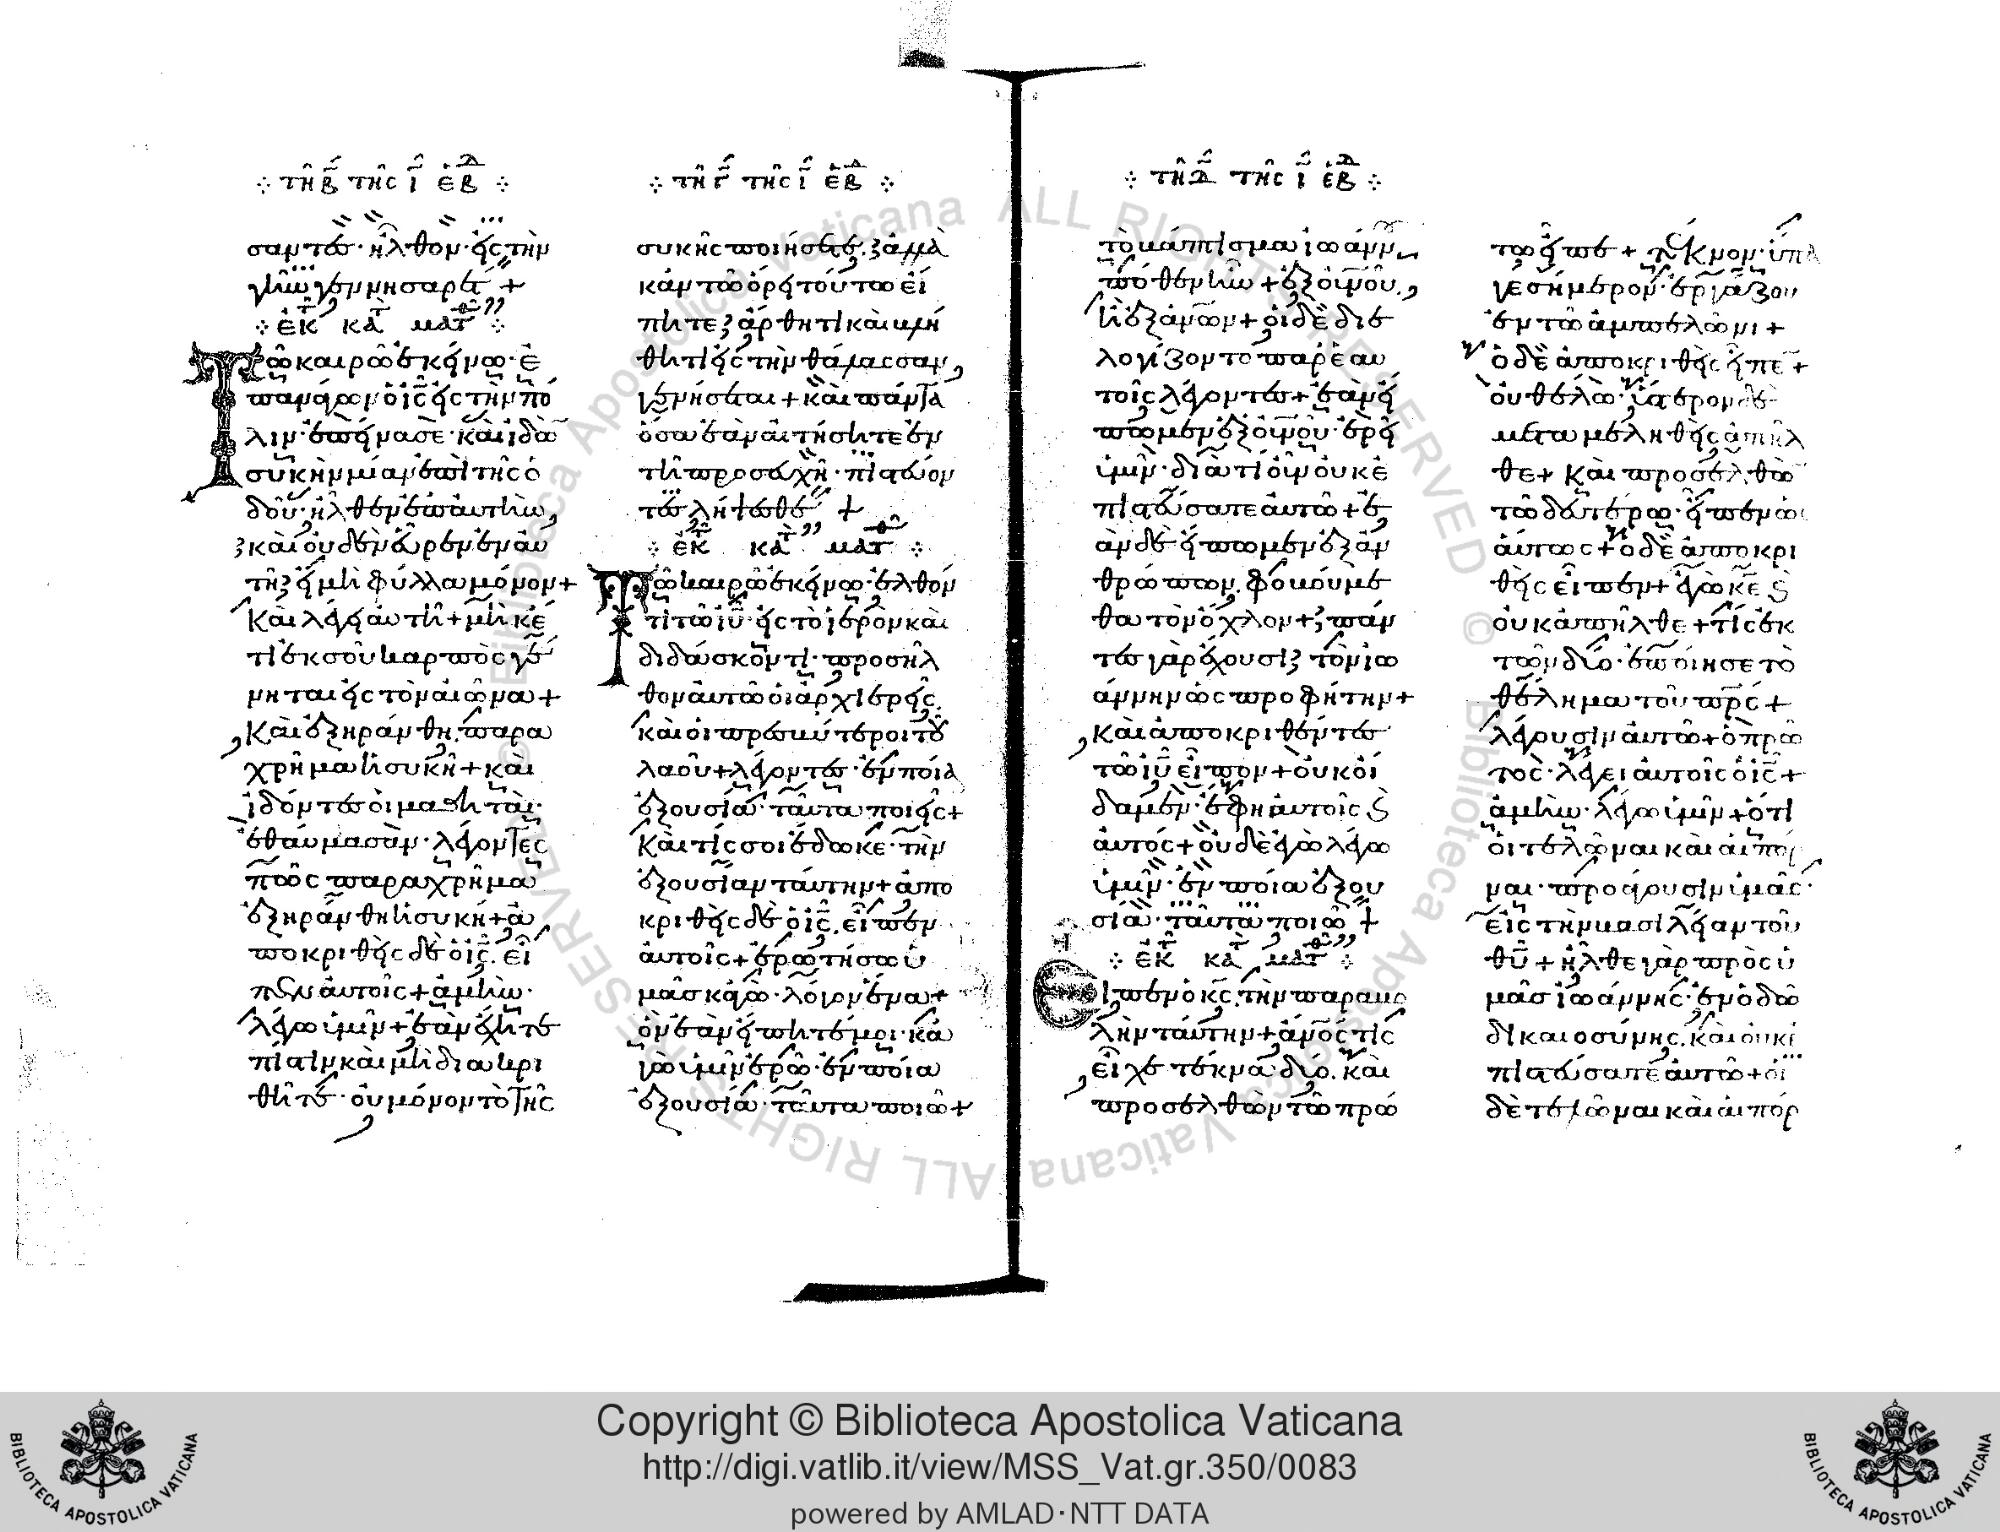 τῆ β τῆς ϊ ἑβδ
σαντες· ἦλθον· εἰς τὴν
γῆν γεννησαρέτ +
ἐκ κατ ματθ
Τῶ καιρῶ ἐκείνω· ἐ
πανάγων ὁ ις εἰς τὴν πό
λιν· ἐπείνασε· καὶ ἰδὼν
συκὴν μίαν ἐπὶ τῆς ὁ
δοῦ· ἦλθεν ἐπ αυτὴν,
καὶ οὐδὲν εὗρεν ἐν αυ
τῆ, εἰ μὴ φύλλα μόνον +
Καὶ λέγει αὐτῆ + μηκέ
τι ἐκ σοῦ καρπὸς γέ
νηται εἰς τὸν αἰῶνα +
Καὶ ἐξηράνθη. παρα
χρῆμα ἡ συκῆ + καὶ
ἰδόντες οἱ μαθηταὶ·
ἐθαύμασαν· λέγοντες
πῶς παραχρῆμα
ἐξηράνθη ἡ συκή + ἀ
ποκριθεὶς δὲ ὁ ις. εἶ
πεν αυτοῖς + ἀμὴν·
λέγω ὑμῖν + ἐὰν ἔχητε
πίστιν καὶ μὴ διακρι
θῆτε· οὐ μόνον τὸ τῆς
τῆ γ τῆς ϊ ἑβδ
συκῆς ποιήσετε, ἀλλὰ
κἂν τῶ ὄρει τούτω εἴ
πητε, ἄρθητι καὶ βλή
θητι εἰς τὴν θάλασσαν,
γενήσεται + καὶ πάντα
ὅσα ἐὰν αἰτήσητε ἐν
τῆ προσευχῆ· πιστεύον
τες λήψεσθε +
ἐκ κατ ματθ
Τῶ καιρῶ ἐκείνω· ἐλθόν
τι τῶ ιυ· εἰς τὸ ἱερὸν καὶ
διδάσκοντι· προσῆλ
θον αὐτῶ οἱ ἀρχιερεῖς.
καὶ οἱ πρεσβύτεροι τοῦ
λαοῦ + λέγοντες· ἐν ποία
ἐξουσία· ταῦτα ποιεῖς +
Καὶ τίς σοι ἔδωκε· τὴν
ἐξουσίαν ταύτην + ἀπο
κριθεὶς δὲ ὁ ις. εἶπεν
αὐτοῖς + ἐρωτήσω ὑ
μᾶς κἀγὼ· λόγον ἕνα +
ὃν ἐὰν εἴπητέ μοι· κἀ
γὼ ὑμῖν ἐρῶ· ἐν ποία
ἐξουσία· ταῦτα ποιῶ +
τῆ δ τῆς ϊ ἑβδ
τὸ βάπτισμα ἰωάνν,
πόθεν ἦν + ἐξ οὐνοῦ.
ἢ ἐξ ανων + οἱ δὲ διε
λογίζοντο παρ ἑαυ
τοῖς λέγοντες + ἐὰν εἴ
πωμεν ἐξ οὐνοῦ· ἐρεῖ
ὑμῖν· διατί οὖν οὐκ ἐ
πιστεύσατε αὐτῶ + ἐ
ὰν δὲ εἴπωμεν ἐξ ἀν
θρώπων. φοβούμε
θα τὸν ὄχλον +, πάν
τες γὰρ ἔχουσι, τὸν ἰω
άννην ὡς προφήτην +
Καὶ ἀποκριθέντες
τῶ ιυ εἶπον + οὐκ οἴ
δαμεν· ἔφη αὐτοῖς ϗ
ἀυτός + οὐδὲ ἐγὼ λέγω
ὑμῖν· ἐν ποία ἐξου
σία· ταῦτα ποιῶ +
ἐκ κατ ματθ
Εἶπεν ὁ κς. τὴν παραβο
λὴν ταύτην + ανος τίς
εἶχε τέκνα δύο. καὶ
προσελθὼν τῶ πρώ
τω εἶπε + τέκνον· ὕπα
γε σήμερον· ἐργάζου
ἐν τῶ ἀμπελῶνι +
ὁ δὲ ἀποκριθεὶς εἶπεν +
οὐ θέλω· ὕστερον δὲ
μεταμεληθεὶς ἀπῆλ
θε + Καὶ προσελθὼν
τῶ δευτέρω· εἶπεν ὡσ
αύτως + ὁ δὲ ἀποκρι
θεὶς εἶπεν + ἐγὼ κε ϗ
οὐκ ἀπῆλθε + τίς ἐκ
τῶν δύο· ἐποίησε τὸ
θέλημα τοῦ πρς +
λέγουσιν αὐτῶ + ὁ πρῶ
τος· λέγει αὐτοῖς ὁ ις +
ἀμὴν· λέγω ὑμῖν + ὅτι
οἱ τελῶναι καὶ αἱ πόρ
ναι· προάγουσιν ὑμᾶς·
εἰς τὴν βασιλείαν τοῦ
θυ + ἦλθε γὰρ πρὸς ὑ
μᾶς ἰωάννης· ἐν ὁδῶ
δικαιοσύνης. καὶ οὐκ ἐ
πιστεύσατε αὐτῶ + οἱ
δὲ τελῶναι καὶ αἱ πόρ
Copyright © Biblioteca Apostolica Vaticana
http://digi.vatlib.it/view/MSS_Vat.gr.350/0083
powered by AMLAD·NTT DATA
BIBLIOTECA APOSTOLICA VATICANA
BIBLIOTECA APOSTOLICA VATICANA
© Biblioteca Apostolica Vaticana ALL RIGHTS RESERVED © Biblioteca Apostolica Vaticana ALL RIGHTS RESERVED